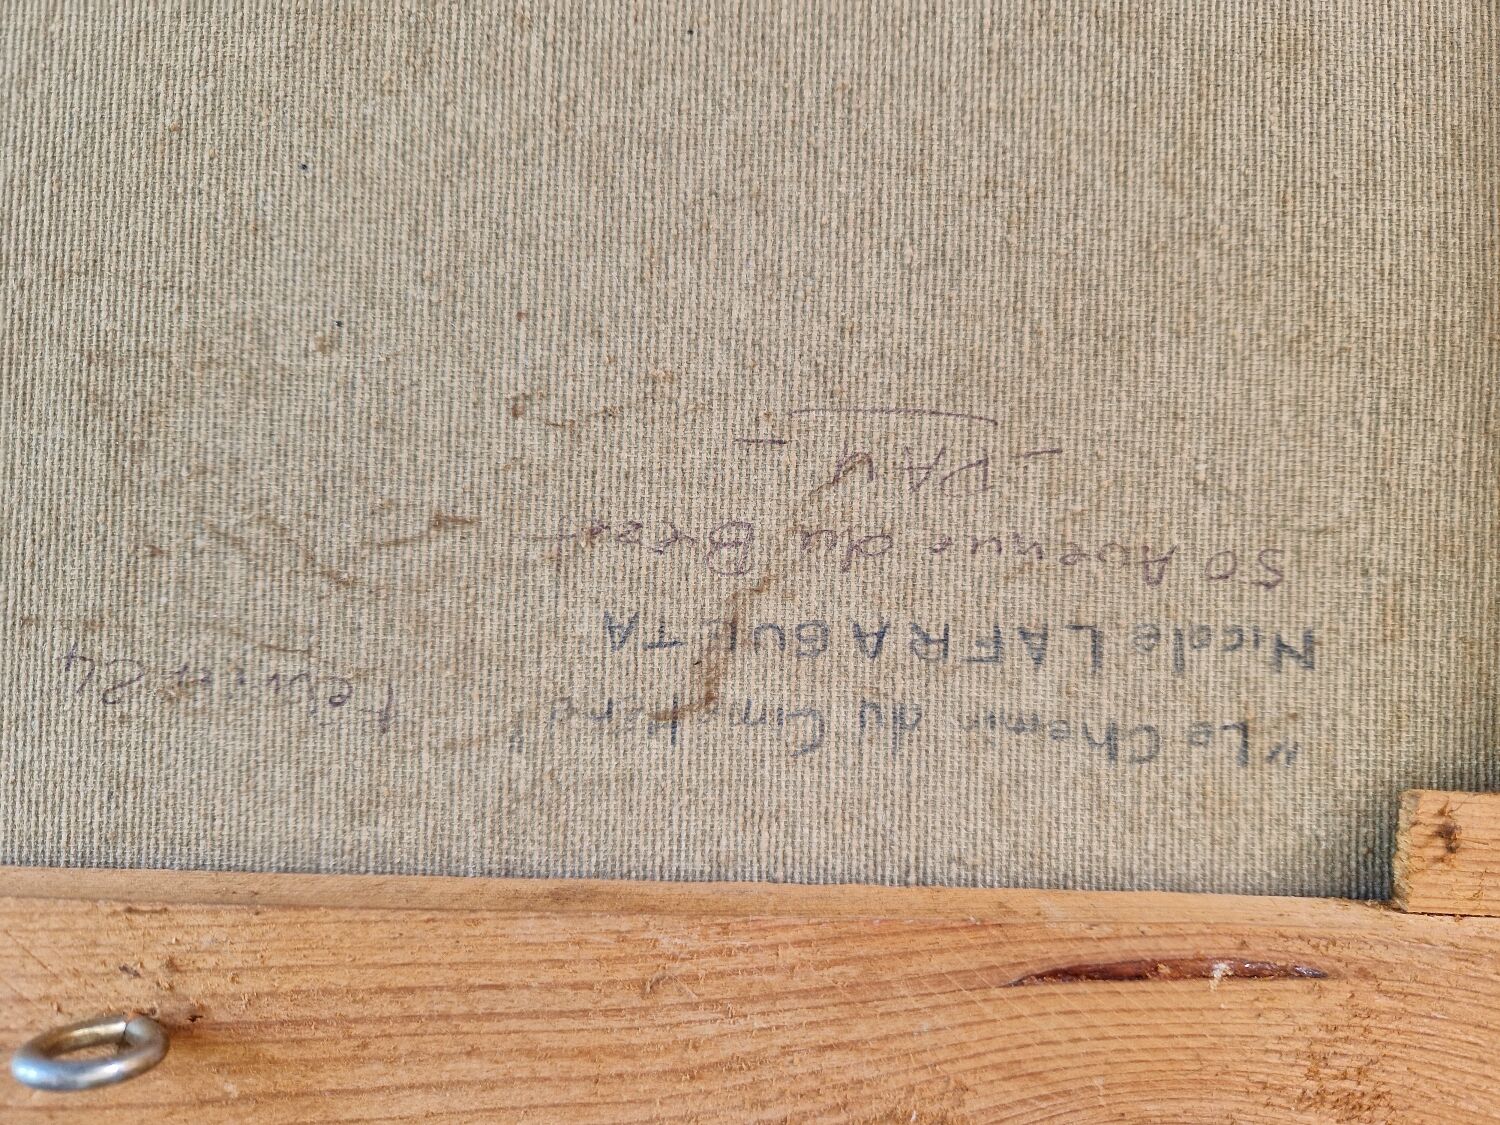 "Le Chemin du Cimetière" Février 84
Nicole LAFRAGUETA
50 Avenue du Brézet
- PAU -